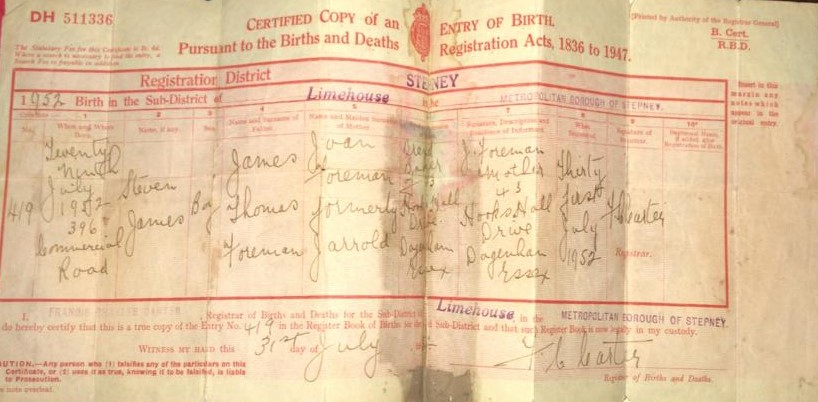 DH 511336
CERTIFIED COPY of an ENTRY OF BIRTH.
Pursuant to the Births and Deaths Registration Acts, 1836 to 1947.
[Printed by Authority of the Registrar General]
B. Cert.
R.B.D.
The Statutory Fee for this Certificate is
Registration District STEPNEY
1952 Birth in the Sub-District of Limehouse in the METROPOLITAN BOROUGH OF STEPNEY.
Insert in this
margin any
notes which
appear in the
original entry.
1 2 3 4 5 7 8 9 10*
No. When and Where Born. Name, if any. Sex. Name and Surname of Father. Name and Maiden Surname of Mother. Signature, Description and Residence of Informant. When Registered. Signature of Registrar.
419
Twenty
Ninth
July
1952
396
Commercial
Road
Steven
James
Boy
James
Thomas
Foreman
Joan
Foreman
formerly
Jarrold
Baker
43
Hooks Hall
Drive
Dagenham
Essex
J. Foreman
Mother
43
Hooks Hall
Drive
Dagenham
Essex
Thirty
first
July
1952
F C Carter
Registrar.
I, FRANCIS CHARLES CARTER, Registrar of Births and Deaths for the Sub-District of Limehouse in the METROPOLITAN BOROUGH OF STEPNEY
do hereby certify that this is a true copy of the Entry No. 419 in the Register Book of Births for the said Sub-District and that such Register Book is now legally in my custody.
WITNESS MY HAND this 31st day of July
F C Carter
Registrar of Births and Deaths.
CAUTION.—Any person who (1) falsifies any of the particulars on this
Certificate, or (2) uses it as true, knowing it to be falsified, is liable
to Prosecution.
notes overleaf.